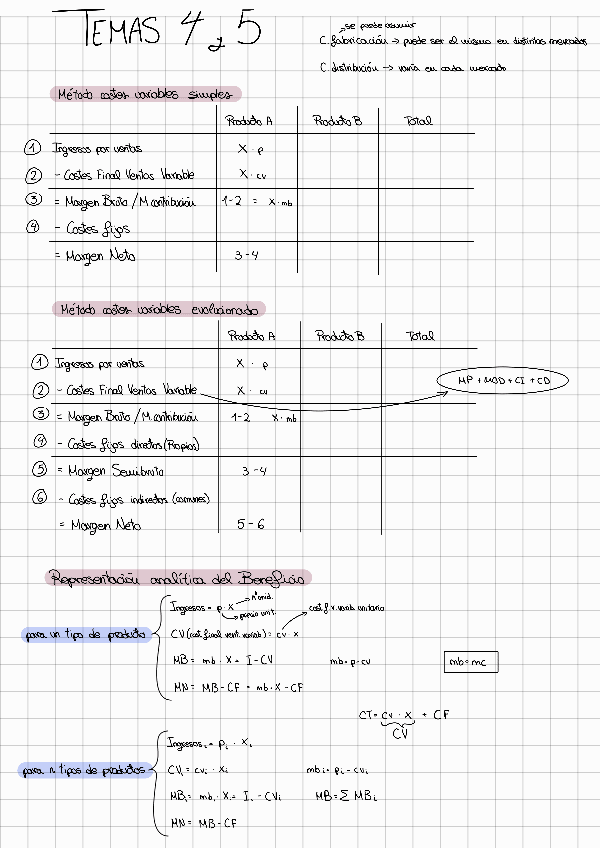 TEMAS 4 y 5
se puede asumir
C. fabricación → puede ser el mismo en distintos mercados
C. distribución → varía en cada mercado
Método costes variables simples
Producto A Producto B Total
① Ingresos por ventas X · p
② - Costes Final Ventas Variable X · cv
③ = Margen Bruto / M. contribución 1-2 = X · mb
④ - Costes fijos
= Margen Neto 3-4
Método costes variables evolucionado
Producto A Producto B Total
① Ingresos por ventas X · p
② - Costes Final Ventas Variable X · cv
MP + MOD + CI + CD
③ = Margen Bruto / M. contribución 1-2 X · mb
④ - Costes fijos directos (Propios)
⑤ = Margen Semibruto 3-4
⑥ - Costes fijos indirectos (comunes)
= Margen Neto 5-6
Representación analítica del Beneficio
para un tipo de producto
Ingresos = p · X → nº unid.
→ precio unit.
CV (cost. final vent. variab) = cv · X cost. f. v. variab unitario
MB = mb · X = I - CV mb = p - cv mb = mc
MN = MB - CF = mb · X - CF
CT = cv · X + CF
CV
para n tipos de productos
Ingresos i = pi · Xi
CVi = cvi · Xi mbi = pi - cvi
MBi = mbi · Xi = Ii - CVi MB = Σ MBi
MN = MB - CF